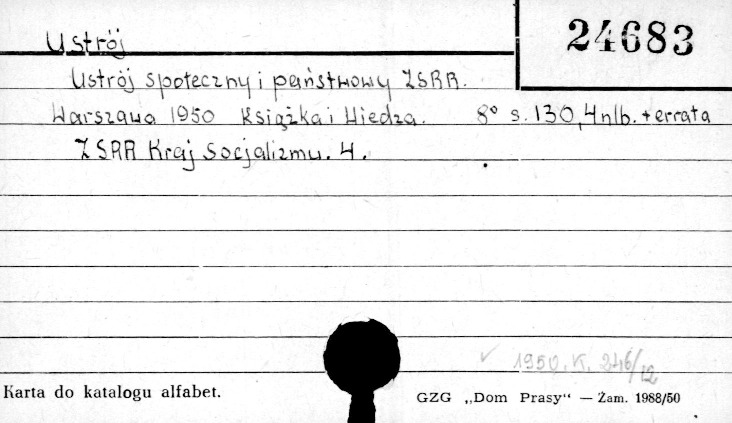 Ustrój
24683
Ustrój społeczny i państwowy ZSRR.
Warszawa 1950 Książka i Wiedza. 8° s. 130, 4 nlb. + errata
ZSRR Kraj Socjalizmu. 4.
✓ 1950. K. 246/12
Karta do katalogu alfabet.
GZG „Dom Prasy“ — Zam. 1988/50